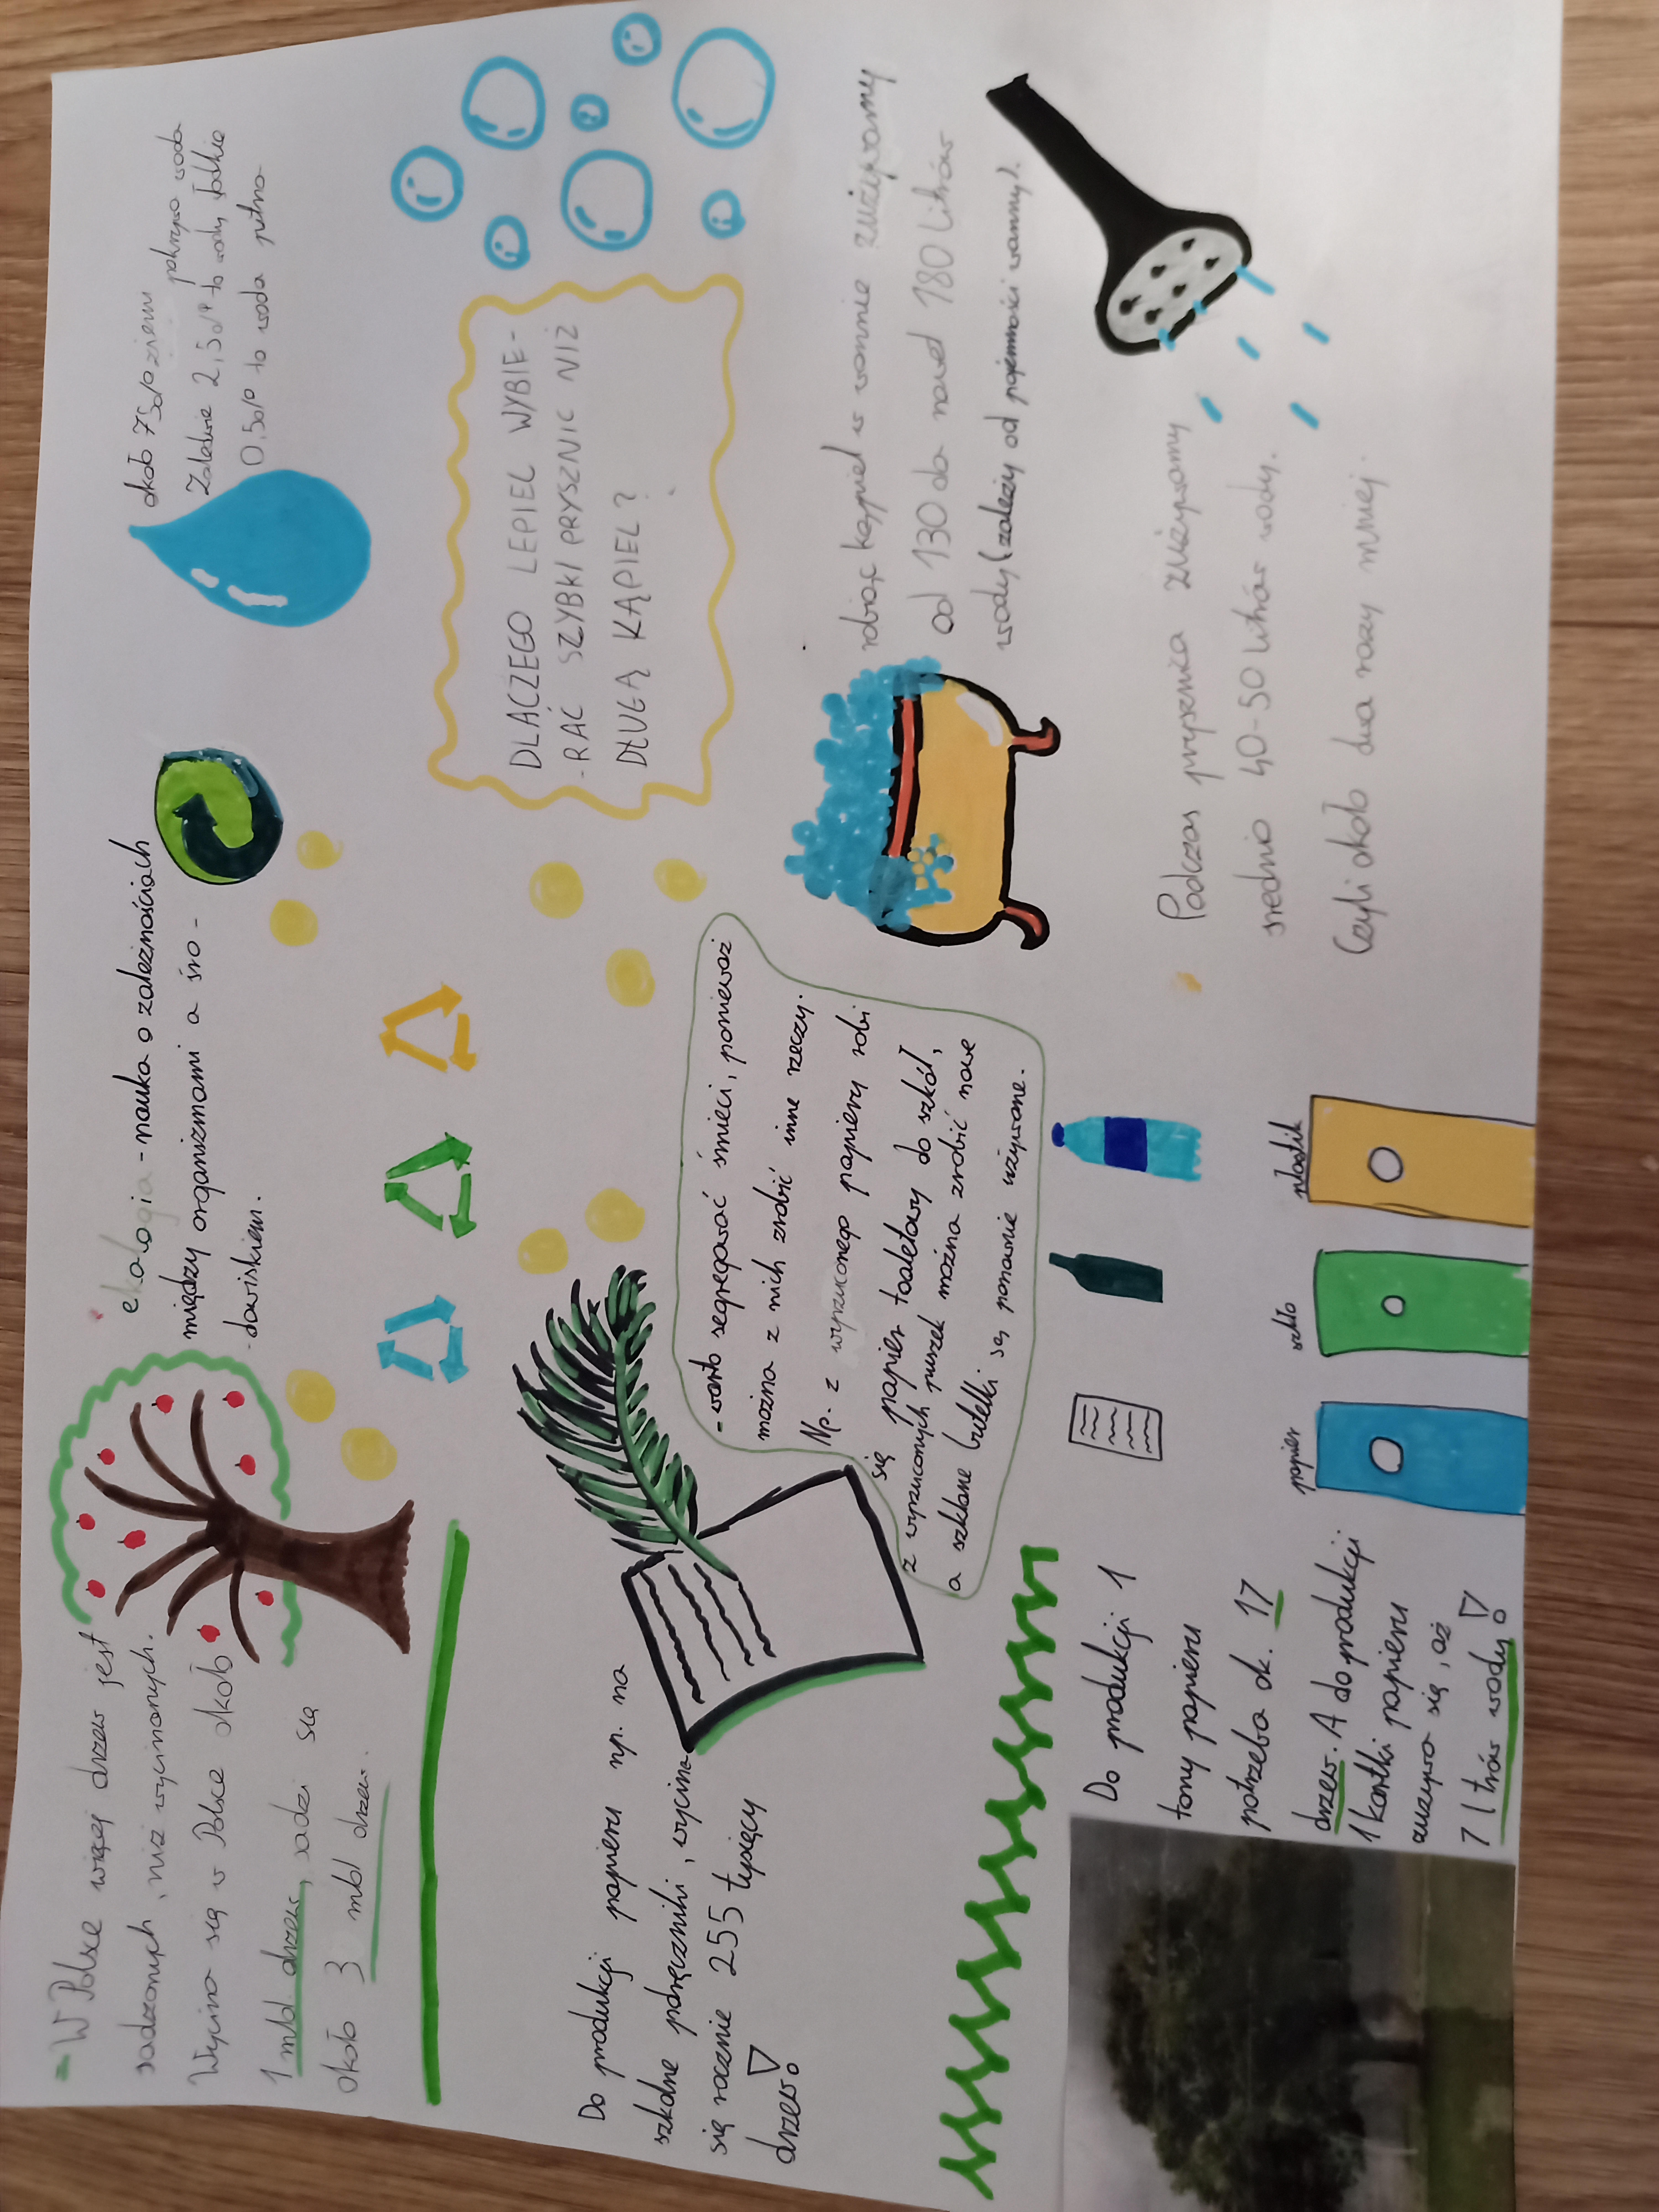 - W Polsce więcej drzew jest
sadzonych, niż wycinanych.
Wycina się w Polsce około
1 mld. drzew, sadzi się
około 3 mld drzew.
ekologia - nauka o zależnościach
między organizmami a śro-
-dowiskiem.
około 75% ziemi pokrywa woda
Zaledwie 2,5% to wody słodkie
0,5% to woda pitna
DLACZEGO LEPIEJ WYBIE-
-RAĆ SZYBKI PRYSZNIC NIŻ
DŁUGĄ KĄPIEL?
Do produkcji papieru np. na
szkolne podręczniki, wycina
się rocznie 255 tysięcy
drzew!
- warto segregować śmieci, ponieważ
można z nich zrobić inne rzeczy.
Np. z wyrzuconego papieru robi
się papier toaletowy do szkół,
z wyrzuconych puszek można zrobić nowe
a szklane butelki są ponownie używane.
robiąc kąpiel w wannie zużywamy
od 130 do nawet 180 litrów
wody (zależy od pojemności wanny).
Podczas prysznica zużywamy
średnio 40-50 litrów wody.
Czyli około dwa razy mniej.
Do produkcji 1
tony papieru
potrzeba ok. 17
drzew. A do produkcji
1 kartki papieru
zużywa się, aż
7 l trów wody!
papier
szkło
plastik